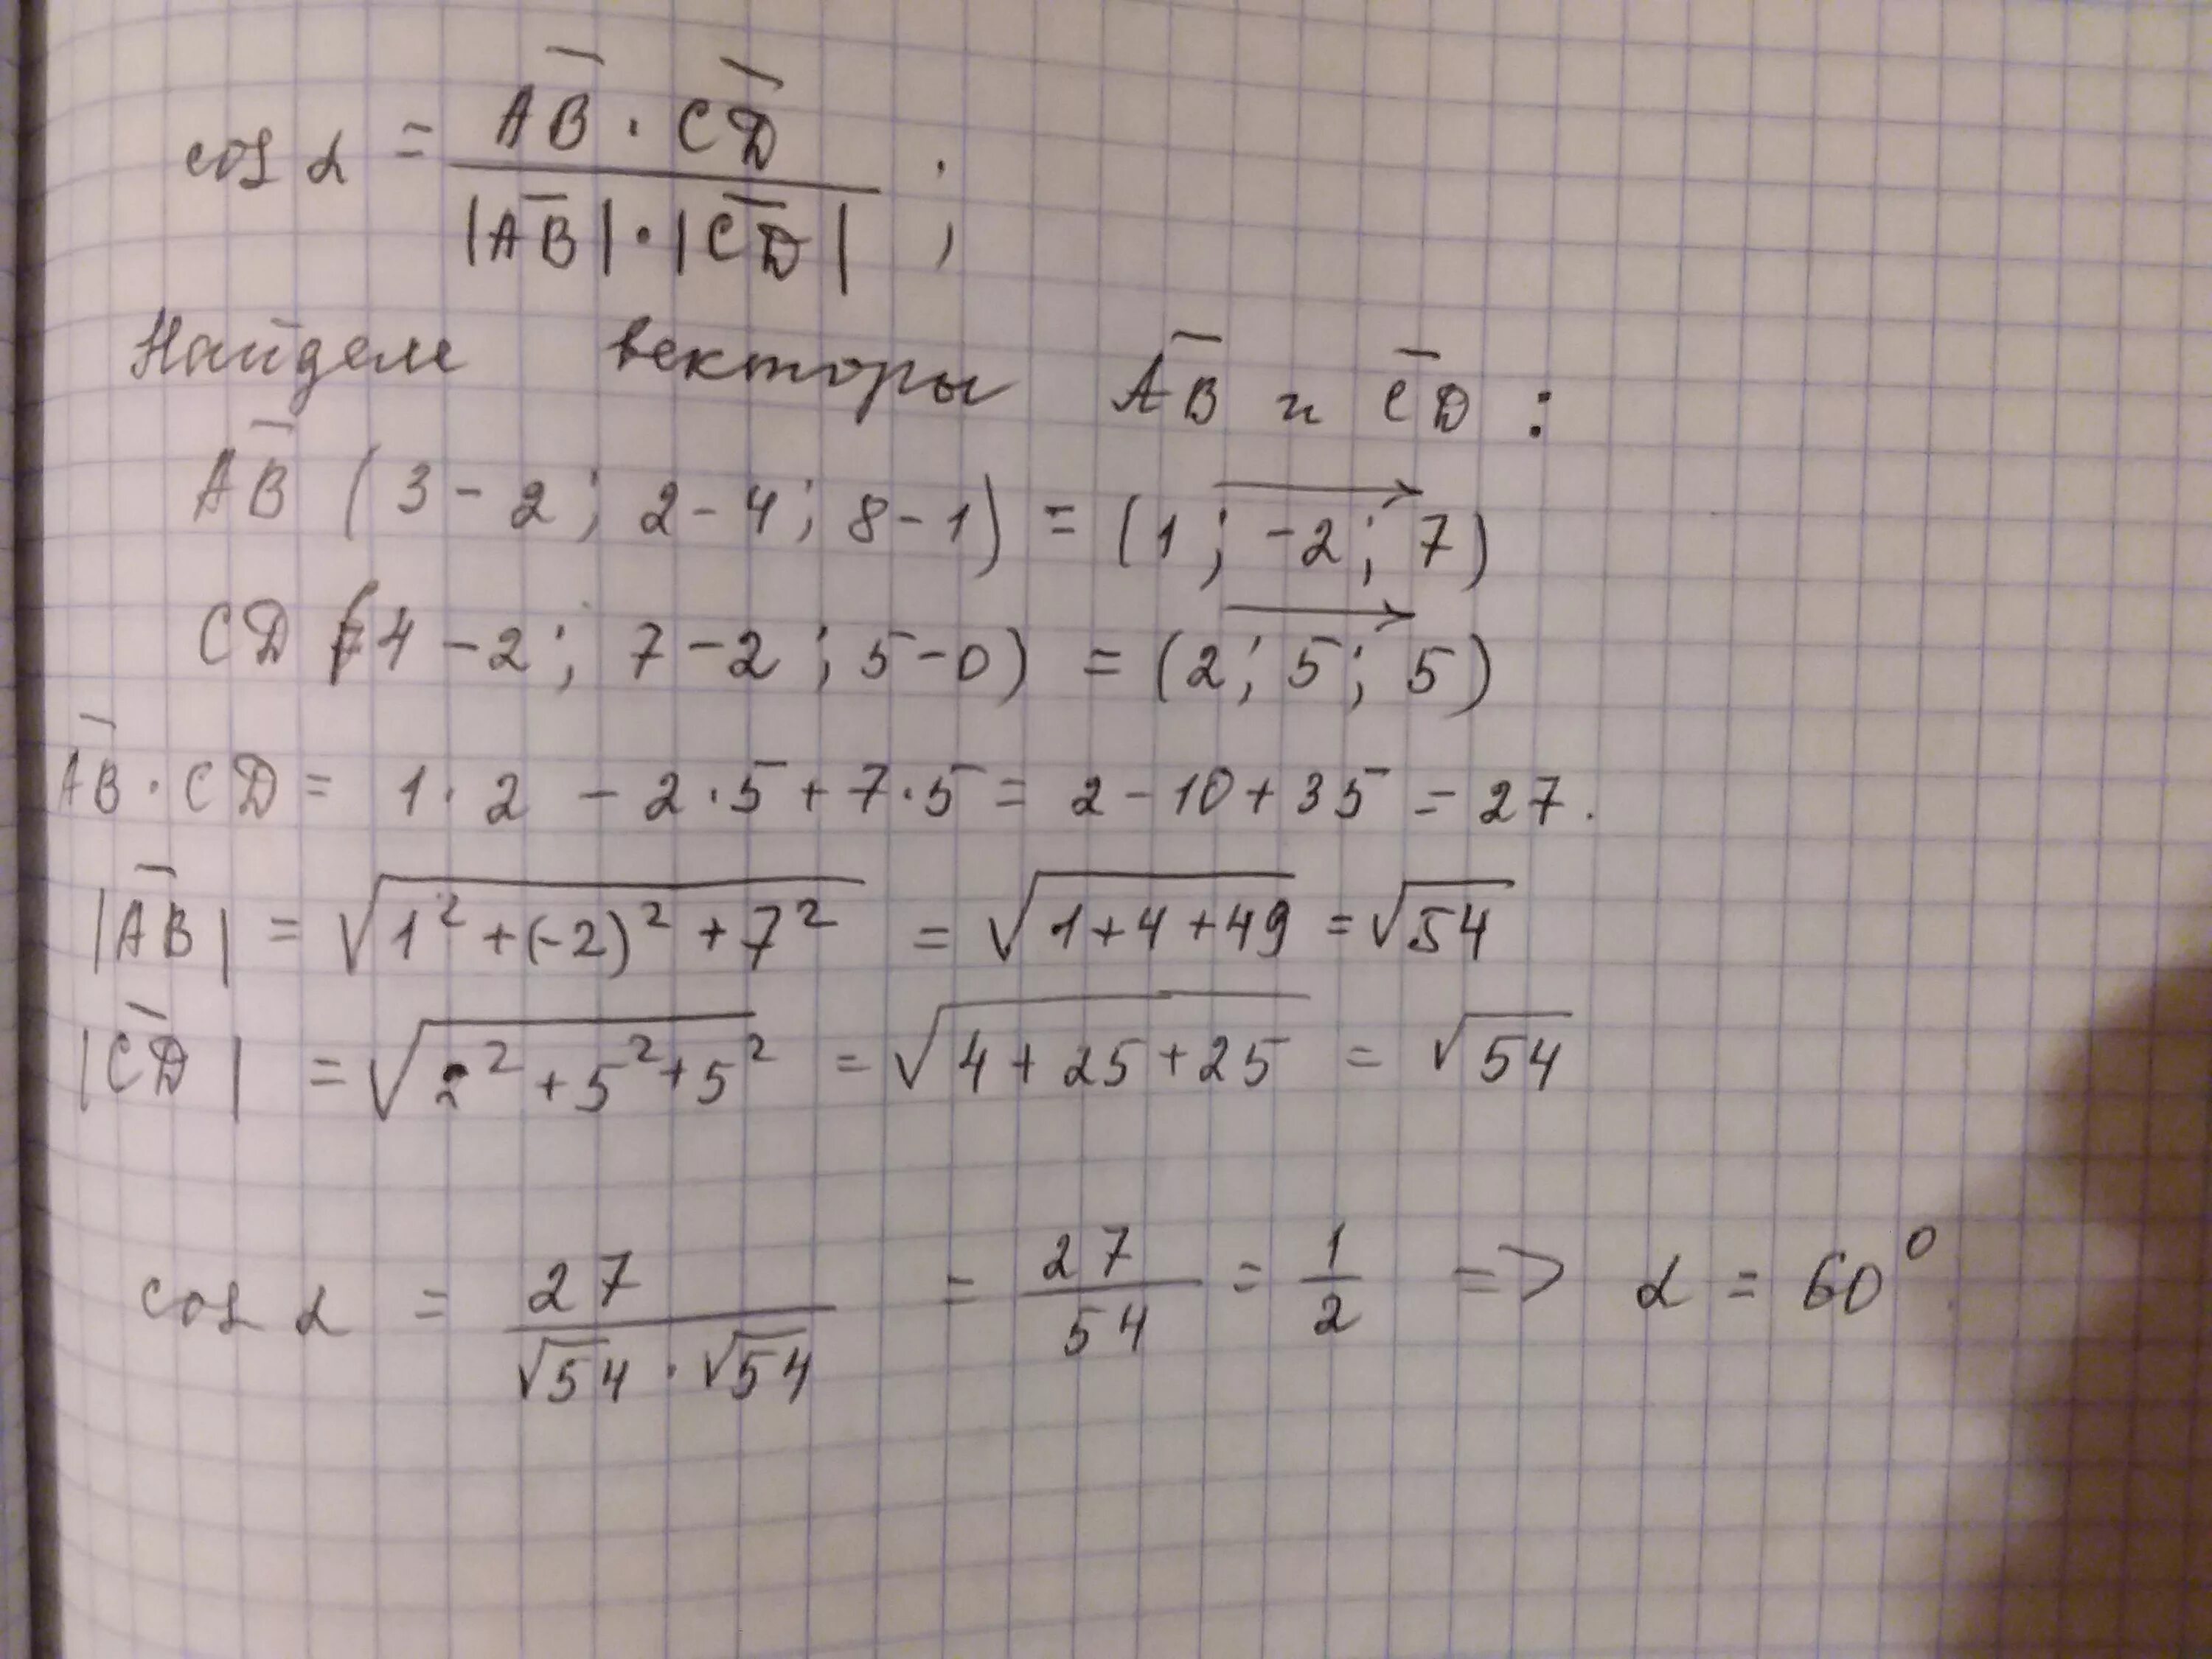 cos α = AB · CD / |AB| · |CD| ;
Найдем векторы AB и CD :
AB ( 3 - 2 ; 2 - 4 ; 8 - 1 ) = ( 1 ; -2 ; 7 )
CD ( 4 - 2 ; 7 - 2 ; 5 - 0 ) = ( 2 ; 5 ; 5 )
AB · CD = 1 · 2 - 2 · 5 + 7 · 5 = 2 - 10 + 35 = 27 .
|AB| = √(1² + (-2)² + 7²) = √(1 + 4 + 49) = √54
|CD| = √(2² + 5² + 5²) = √(4 + 25 + 25) = √54
cos α = 27 / √54 · √54 = 27 / 54 = 1 / 2 => α = 60°